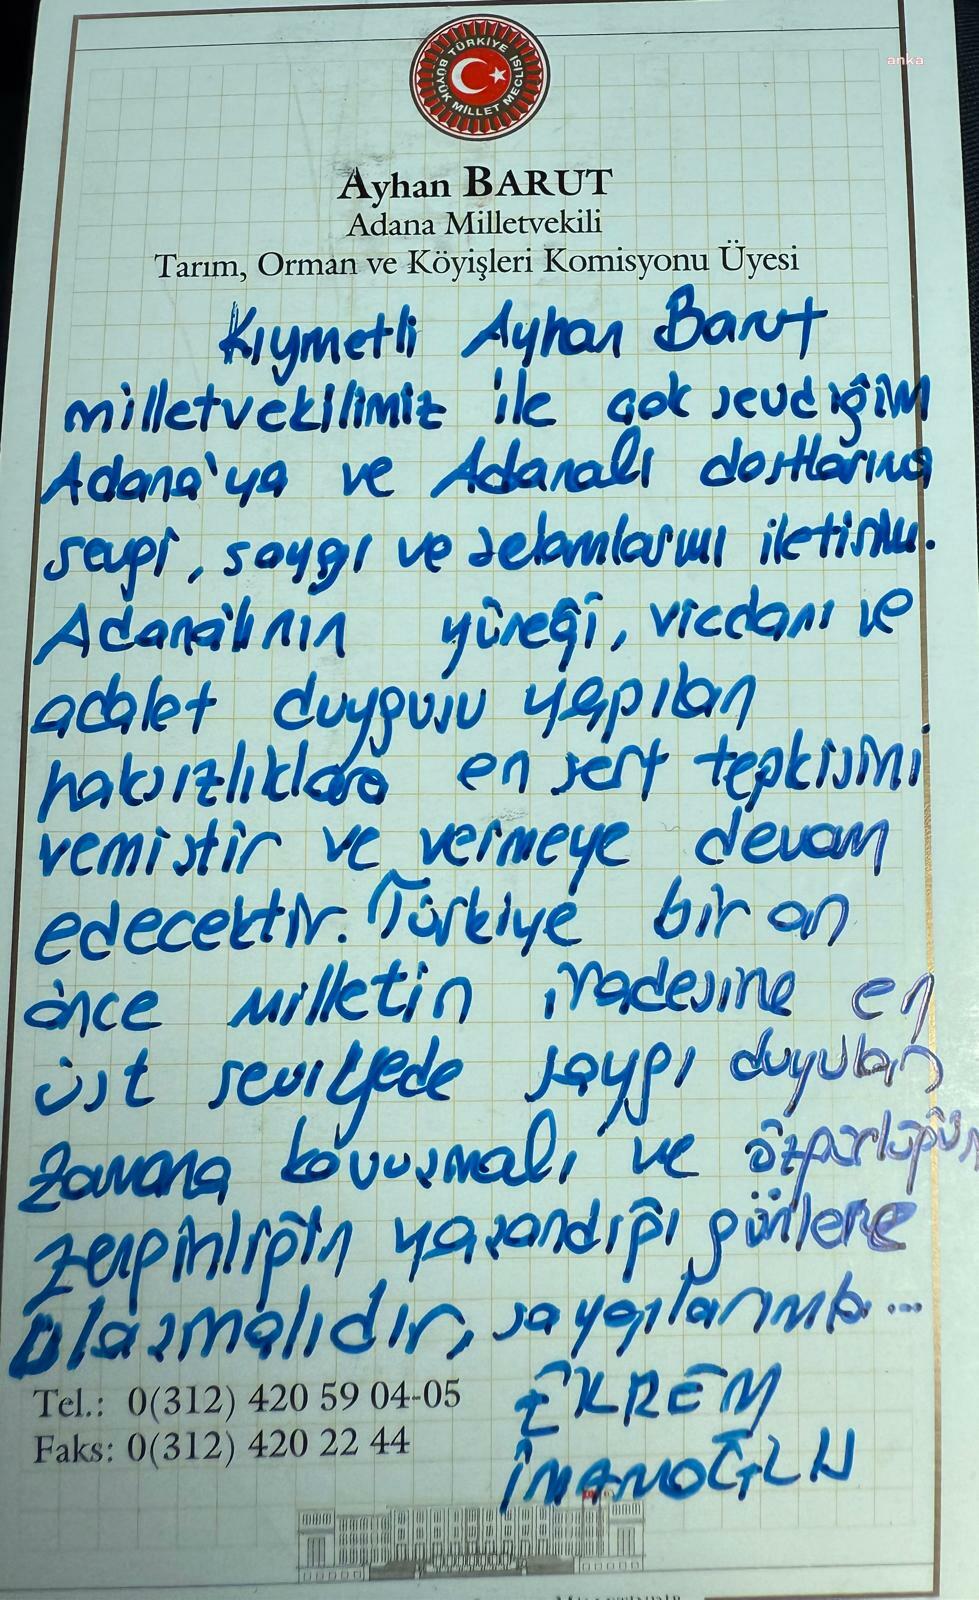 anka
TÜRKİYE
BÜYÜK MİLLET MECLİSİ
Ayhan BARUT
Adana Milletvekili
Tarım, Orman ve Köyişleri Komisyonu Üyesi
Kıymetli Ayhan Barut
milletvekilimiz ile çok sevdiğim
Adana'ya ve Adanalı dostlarıma
sevgi, saygı ve selamlarımı iletirim.
Adanalının yüreği, vicdanı ve
adalet duygusu yapılan
haksızlıklara en sert tepkisini
vermiştir ve vermeye devam
edecektir. Türkiye bir an
önce milletin iradesine en
üst seviyede saygı duyulan
zamana kavuşmalı ve özgürlüğün
zenginliğin yaşandığı günlere
ulaşmalıdır, saygılarımla...
Tel.: 0(312) 420 59 04-05
EKREM
Faks: 0(312) 420 22 44
İMAMOĞLU